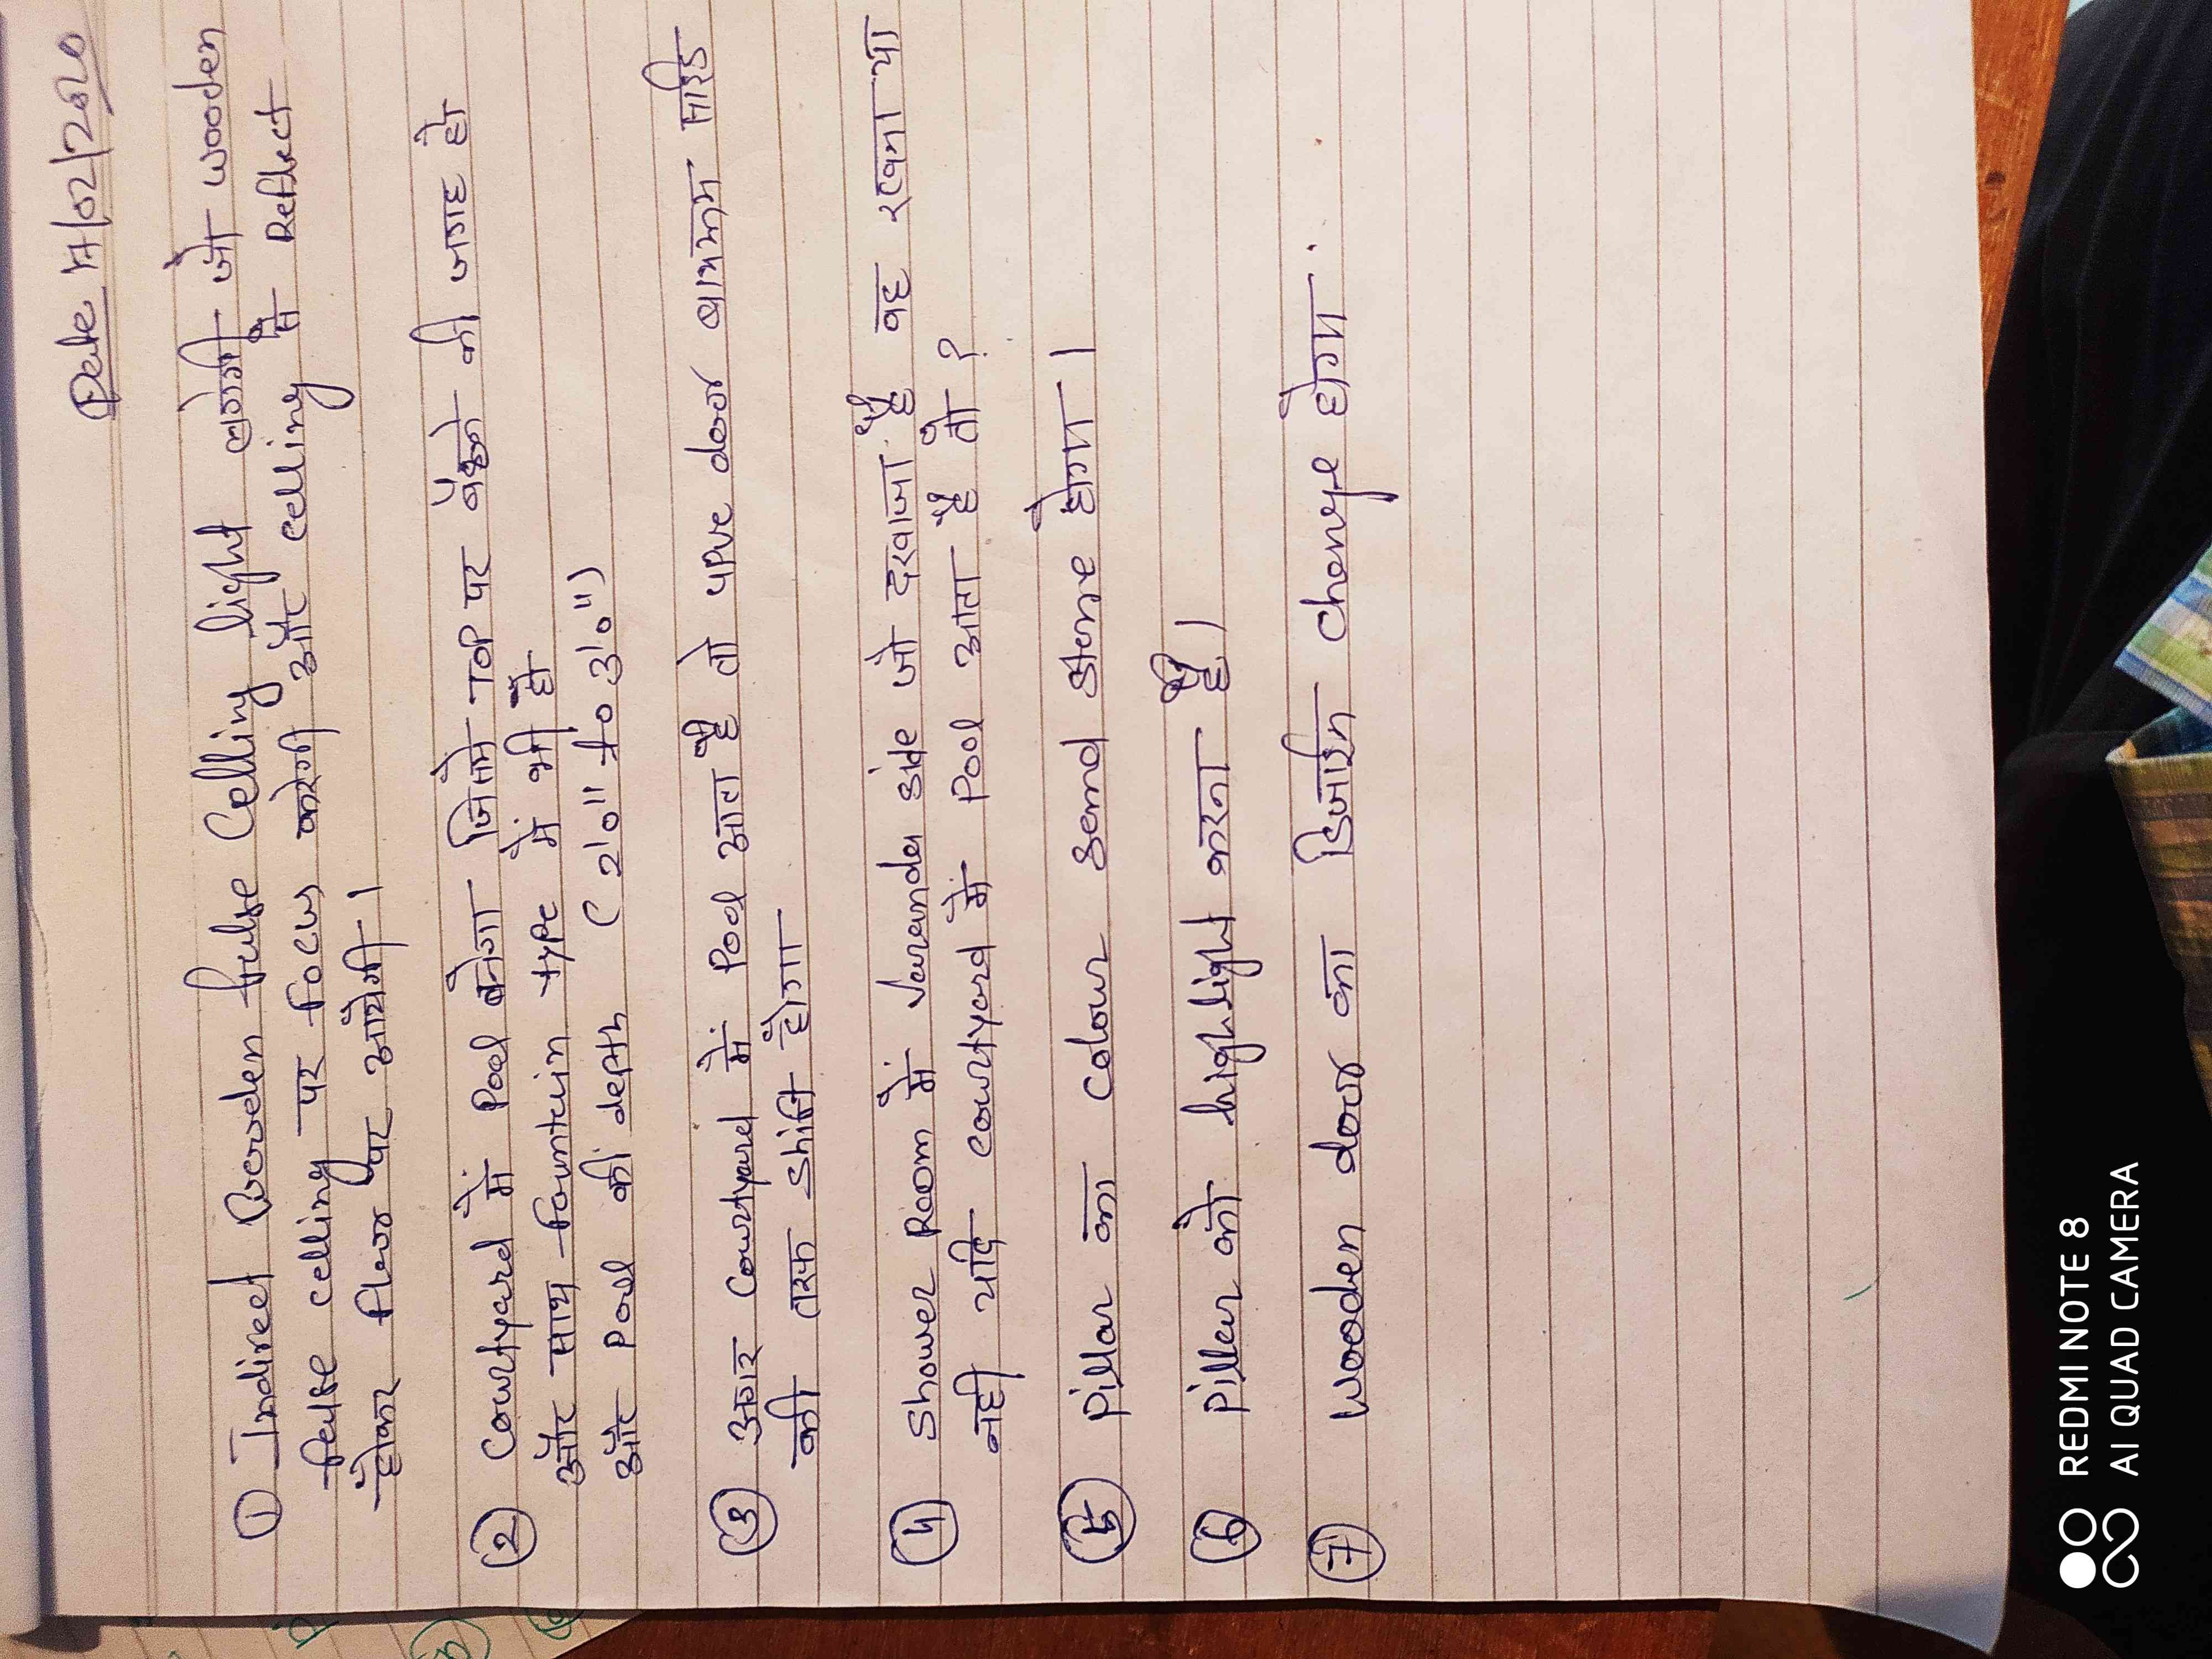 Date 17/02/2020
① Indirect Wooden false Celling light लगेगी जो wooden
false celling पर focus करेगी और celling से Reflect
होकर floor पर आयेगी।
② Courtyard में Pool बनेगा जिसमे TOP पर बैठने की जगह हो
और साथ fountain type में भी हो
और Pool की depth (2'0" to 3'0")
③ अगर Courtyard में Pool आता है तो upvc door बाथरूम साइड
की तरफ shift होगा
④ Shower Room में Varanda side जो दरवाजा है वह रखना या
नही यदि courtyard में Pool आता है तो ?
⑤ Pillar का Colour Sand Stone होगा।
⑥ Pillar को highlight करना है।
⑦ Wooden door का डिजाईन change होगा.
REDMI NOTE 8
AI QUAD CAMERA